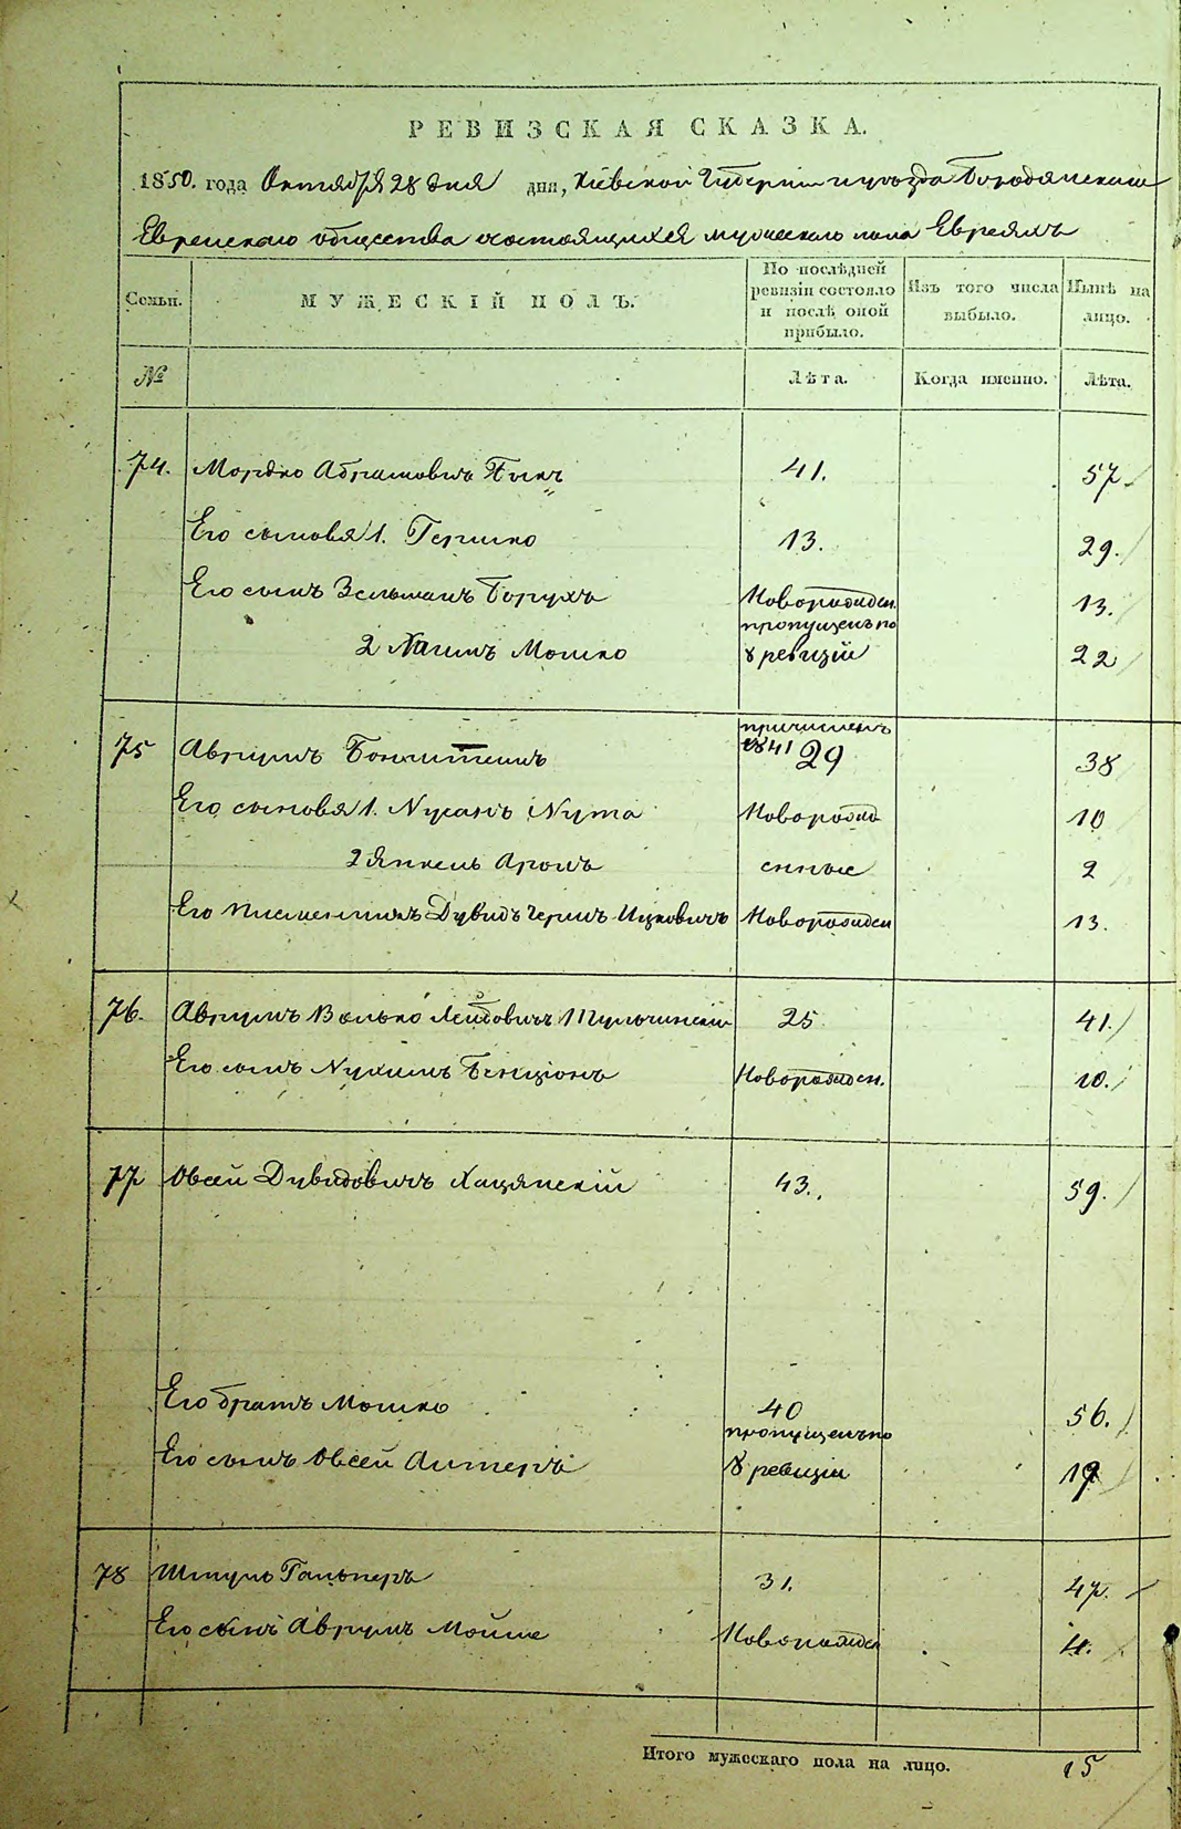 РЕВИЗСКАЯ СКАЗКА.
1850. года Октября 28 дня дня, Кіевской Губерніи и уѣзда Бородянскаго
Еврейскаго общества состоящихся мужескаго пола Евреямъ
Семьи. МУЖЕСКІЙ ПОЛЪ. По послѣдней ревизіи состояло и послѣ оной прибыло. Изъ того числа выбыло. Нынѣ на лицо.
№ Лѣта. Когда именно. Лѣта.
74. Мордко Абрамовичъ 41. 57
Его сыновья 1. Гершко 13. 29.
Его сынъ Зельманъ Борухъ Новорожден. 13.
2 Хаимъ Мошко пропущенъ по 8 ревизіи 22
75 Аврумъ причисленъ 1841 29 38
Его сыновья 1. Нусанъ Нута Новорожд 10
2 Янкель Аронъ енные 2
Его Племянникъ Дувидъ Гершъ Ицковичъ Новорожден 13.
76. Аврумъ Волько Лейбовичъ Тульчинскій 25 41.
Его сынъ Нухимъ Бенціонъ Новорожден. 10.
77 Овсей Дувидовичъ Хацянскій 43. 59.
Его братъ Мошко 40 56.
Его сынъ Овсей Алтеръ пропущенъ по 8 ревизіи 19
78 Шмуль Гальперъ 31. 47.
Его сынъ Аврумъ Мойше Новорожден 4.
Итого мужескаго пола на лицо. 15